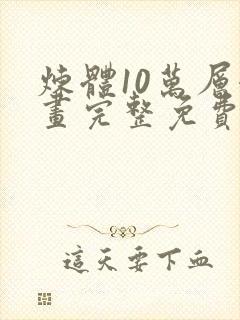 煉體10萬層
畫完整免費
這天要下血